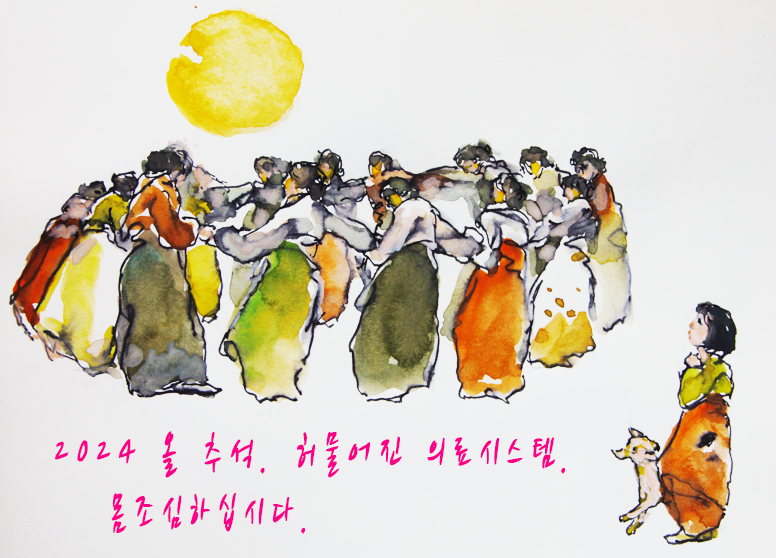 2024 올 추석. 허물어진 의료시스템.
몸조심하십시다.